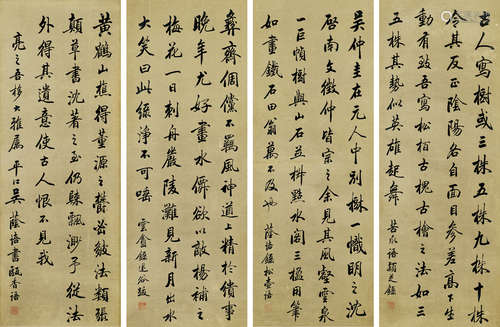 古人寫樹或三株五株九株十株
令其反正陰陽各自面目參差高下生
動有致吾寫松柏古槐古檜之法如三
五株其勢似英雄起舞 苦瓜語類是錄
吳仲圭在元人中別樹一幟明之沈
啓南文徵仲皆宗之余見其風壑雲泉
一巨幀樹與山石並斡點水閣三楹用筆
如畫鐵石田翁萬不及也 蔭培錄松壺語
彝齋倜儻不羈風神道上精於倩事
晚年尤好畫水僊欲以敵楊補之
梅花一日刺舟嚴陵灘見新月出水
大笑曰此綠淨不可唾 雲龕錄退谷題
黃鶴山樵得董源之鬱密皴法類張
顛草書沈著之至仍歸飄渺予從法
外得其遺意使古人恨不見我
亮之吾移大雅屬平江吳蔭培書甌香語